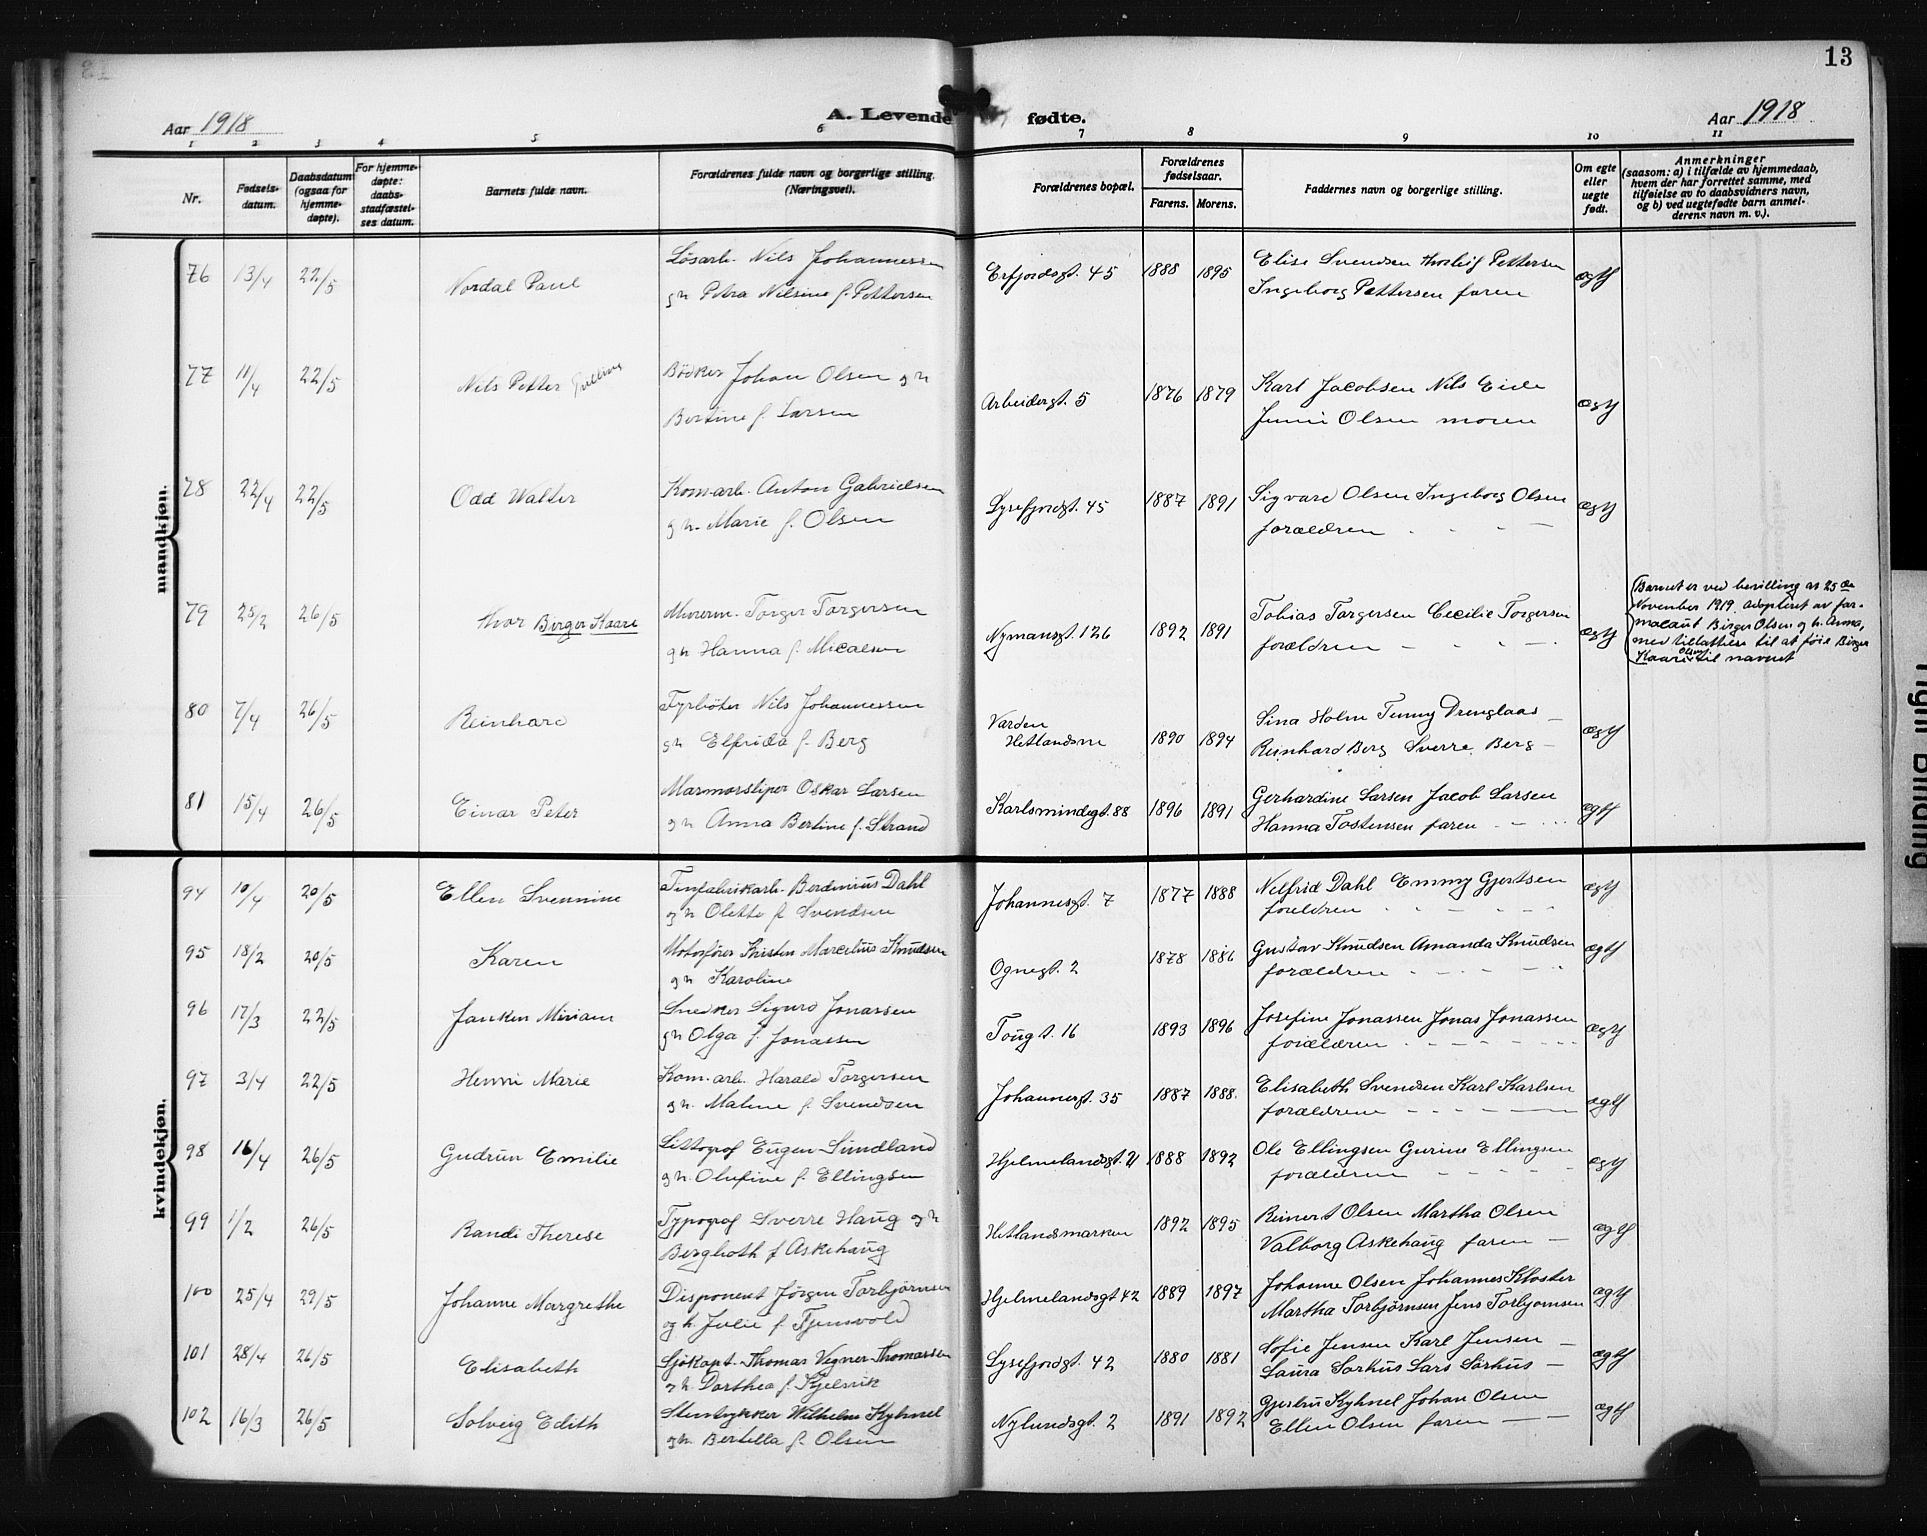 13
Aar 1918 A. Levende fødte. Aar 1918
1 2 3 4 5 6 7 8 9 10 11
Nr.
Fødsels-
datum.
Daabsdatum
(ogsaa for
hjemme-
døpte).
For hjemme-
døpte:
daabs-
stadfæstel-
ses datum.
Barnets fulde navn.
Forældrenes fulde navn og borgerlige stilling.
(Næringsvei).
Forældrenes bopæl.
Forældrenes
fødselsaar.
Farens. Morens.
Faddernes navn og borgerlige stilling.
Om egte
eller
uegte
født.
Anmerkninger
(saasom: a) i tilfælde av hjemmedaab,
hvem der har forrettet samme, med
tilføielse av to daabsvidners navn,
og b) ved uegtefødte barn anmel-
derens navn m. v.).
mandkjøn.
76 13/4 22/5 Nordal Paul
Løsarb. Nils Johannessen
g h Petra Nilsine f. Pettersen
Erfjordsgt. 45 1888 1895
Elise Svendsen Thorleif Pettersen
Ingeborg Pettersen faren
ægtf
77 11/4 22/5 Nils Petter
Bødker Johan Olsen g h
Bertine f. Larsen
Arbeidergt. 5 1876 1879
Karl Jacobsen Nils Eide
Jenni Olsen moren
ægtf
78 22/4 22/5 Odd Walter
Kom.arb. Anton Gabrielsen
g h. Marie f. Olsen
Lysefjordgt. 45 1887 1891
Sigvard Olsen Ingeborg Olsen
forældren
ægtf
79 25/2 26/5 Ivar Birger Kaare
Murerm. Torger Torgersen
g h Hanna f. Micalsen
Nymansgt. 126 1892 1891
Tobias Torgersen Cecilie Torgersen
forældren
ægtf
Barnet er ved bevilling av 25de
November 1919 adopteret av far-
malaut Birger Olsen og h. Anna,
med tilladelse til at føie Birger
Kaare Olsen til navnet
80 7/4 26/5 Reinhard
Fyrbøter Nils Johannessen
g h Elfrida f. Berg
Varden
Hetlandsm 1890 1894
Sina Holm Jenny Drenglaas
Reinhard Berg Sverre Berg
ægtf
81 15/4 26/5 Einar Peter
Marmorsliper Oskar Larsen
g h Anna Bertine f. Strand
Karlsmindegt. 88 1896 1891
Gerhardine Larsen Jacob Larsen
Hanna Tostensen faren
ægtf
kvindekjøn.
94 10/4 20/5 Ellen Svennine
Tinfabrikarb. Berdinius Dahl
g h Olette f. Svendsen
Johannesgt. 7 1877 1888
Nilfrid Dahl Emmy Gjertsen
foreldren
ægtf
95 18/2 20/5 Karen
Motorfører Kristen Marcelius Knudsen
g h Karoline
Ognegt. 2 1878 1886
Gustav Knudsen Amanda Knudsen
forældren
ægtf
96 17/3 22/5 Janken Miriam
Snedker Sigurd Jonassen
g h Olga f. Jonassen
Tougt. 16 1893 1896
Josefine Jonassen Jonas Jonassen
forældren
ægtf
97 3/4 22/5 Henni Marie
Kom.arb. Harald Torgersen
g h. Malene f. Svendsen
Johannesgt. 35 1887 1888.
Elisabeth Svendsen Karl Karlsen
forældrene
ægtf
98 16/4 26/5 Gudrun Emilie
Littograf Eugen Sundland
g h Olufine f. Ellingsen
Hjelmelandsgt. 21 1888 1892
Ole Ellingsen Gurine Ellingsen
forældren
ægtf
99 1/2 26/5 Randi Therese
Typograf Sverre Haug og h
Berglioth f Askehaug
Hetlandsmarken 1892 1895
Reinert Olsen Martha Olsen
Valborg Askehaug faren
ægtf
100 25/4 29/5 Johanne Margrethe
Disponent Jørgen Torbjørnsen
og h. Julie f. Tjensvold
Hjelmelandsgt 42 1889 1897
Johanne Olsen Johannes Kloster
Martha Torbjørnsen Jens Torbjørnsen
ægtf
101 28/4 26/5 Elisabeth
Sjøkapt. Thomas Vegner Thomassen
g h. Dorthea f. Kjelsvik
Lysefjordgt. 42 1880 1881
Sofie Jensen Karl Jensen
Laura Sørhus Lars Sørhus
ægtf
102 16/3 26/5 Solveig Edith
Stentrykker Wilhelm Kyhnel
g h. Bertella f. Olsen
Nylundsgt. 2 1891 1892
Kyhnel Johan Olsen
Ellen Olsen faren
ægtf